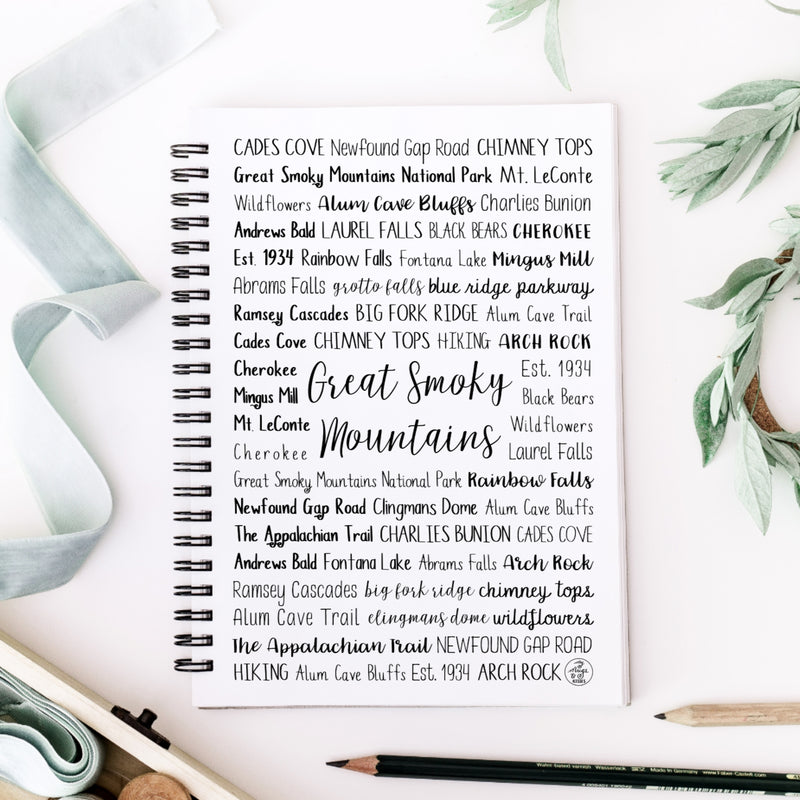 CADES COVE Newfound Gap Road CHIMNEY TOPS
Great Smoky Mountains National Park Mt. LeConte
Wildflowers Alum Cave Bluffs Charlies Bunion
Andrews Bald LAUREL FALLS BLACK BEARS CHEROKEE
Est. 1934 Rainbow Falls Fontana Lake Mingus Mill
Abrams Falls grotto falls blue ridge parkway
Ramsey Cascades BIG FORK RIDGE Alum Cave Trail
Cades Cove CHIMNEY TOPS HIKING ARCH ROCK
Cherokee Est. 1934
Mingus Mill Black Bears
Great Smoky
Mt. LeConte Wildflowers
Cherokee Laurel Falls
Mountains
Great Smoky Mountains National Park Rainbow Falls
Newfound Gap Road Clingmans Dome Alum Cave Bluffs
The Appalachian Trail CHARLIES BUNION CADES COVE
Andrews Bald Fontana Lake Abrams Falls Arch Rock
Ramsey Cascades big fork ridge chimney tops
Alum Cave Trail clingmans dome wildflowers
The Appalachian Trail NEWFOUND GAP ROAD
HIKING Alum Cave Bluffs Est. 1934 ARCH ROCK
Made in Germany www.Faber-Castell.com